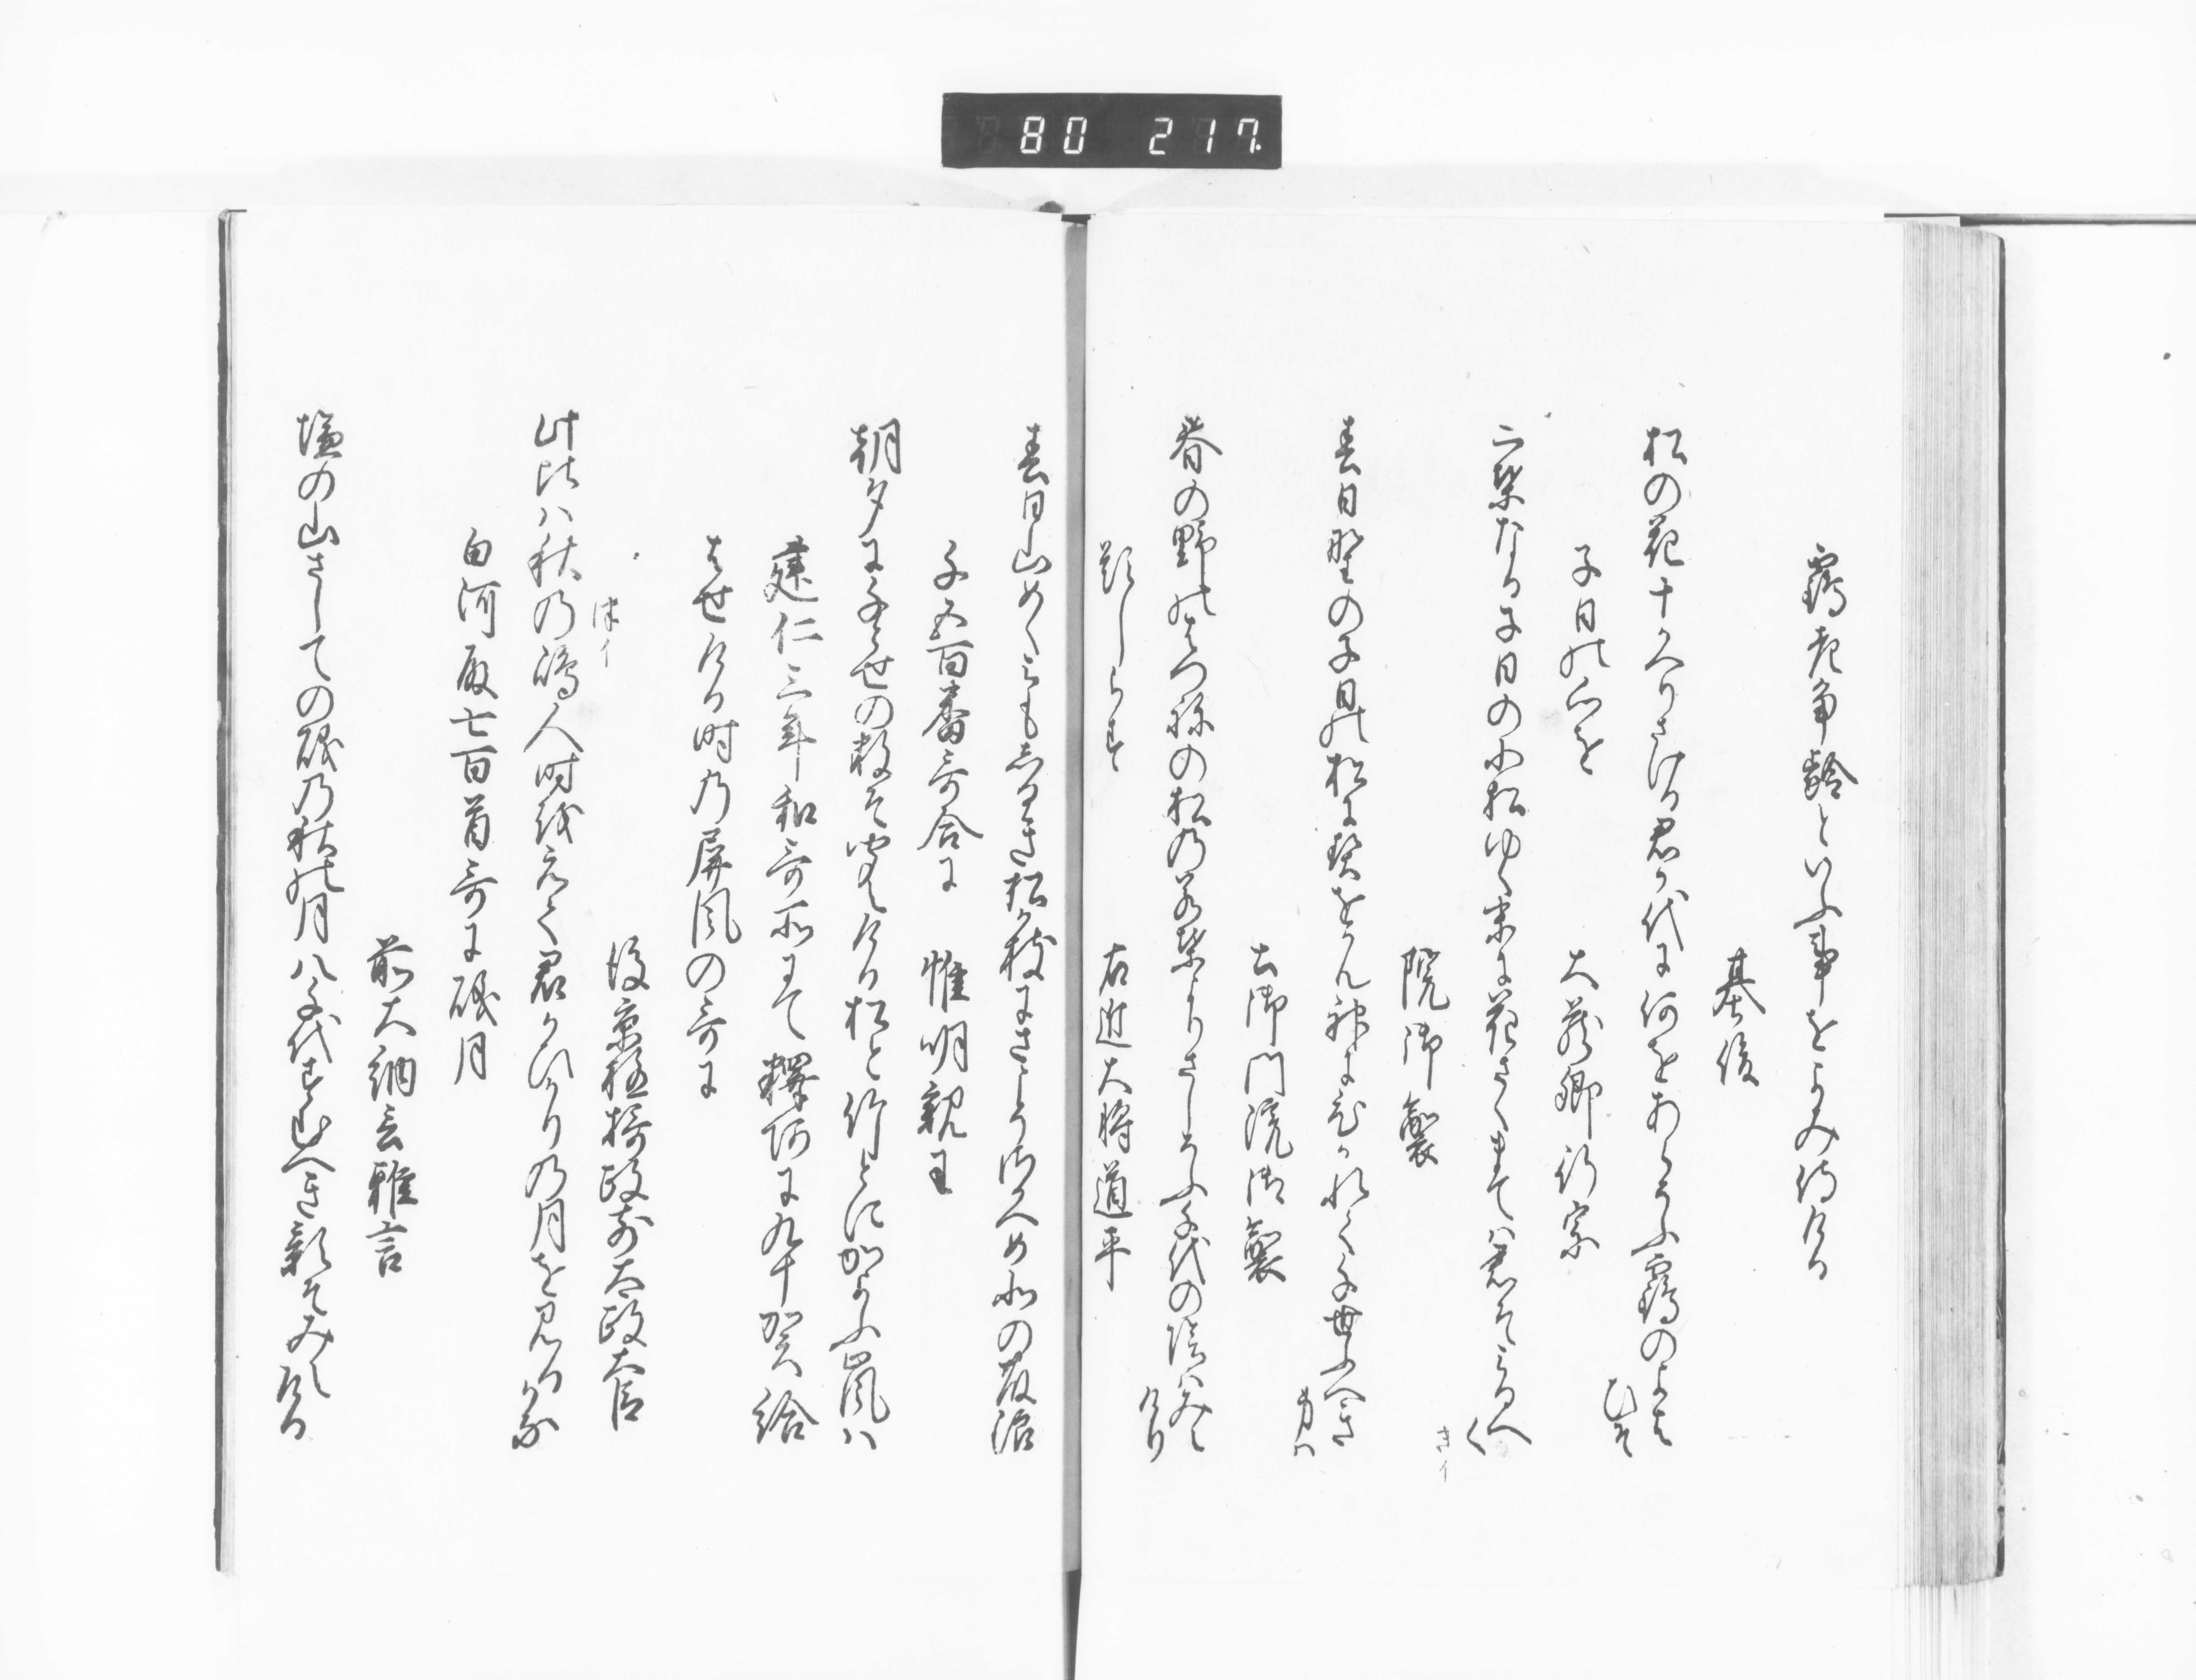 80 217
靍老争齢といふ事をよみ侍ける
基俊
松の花十かへりさける君か代に何をあらそふ靍のよはひそ
子日の心を
大蔵卿行宗
二葉なる子日の小松ゆく末に花さくまては君そみるへく
きイ
院御製
春日野の子日の松に契をかん神にひかれて千世ふへき身ハ
土御門院御製
春の野のはつ祢の松の若葉よりさしそふ千代の陰ハみえけり
題しらす
右近大将道平
春日山めくみもしるき松か枝にさこそさかへめ北の藤浪
千五百番哥合に
惟明親王
朝夕に千とせの数そ聞えける松と竹とにかよふ嵐ハ
建仁三年和哥所にて釋阿に九十賀給
はせける時の屏風の哥に
後京極摂政前太政大臣
此比ハ秋の嶋人時をえて君かひかりの月を見るかな
津イ
白河殿七百首哥に磯月
前大納言雅言
塩の山さしての磯の秋の月八千代すむへき影そみえける